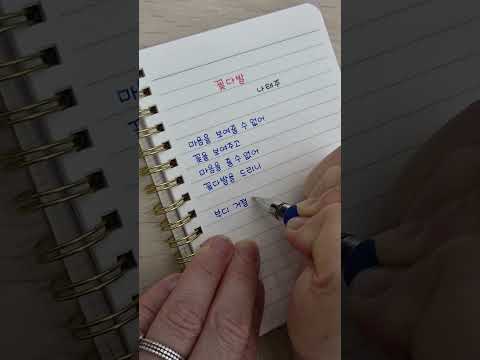 꽃다발
나태주
마음을 보여줄 수 없어
꽃을 보여주고
마음을 줄 수 없어
꽃다발을 드리니
부디 거절